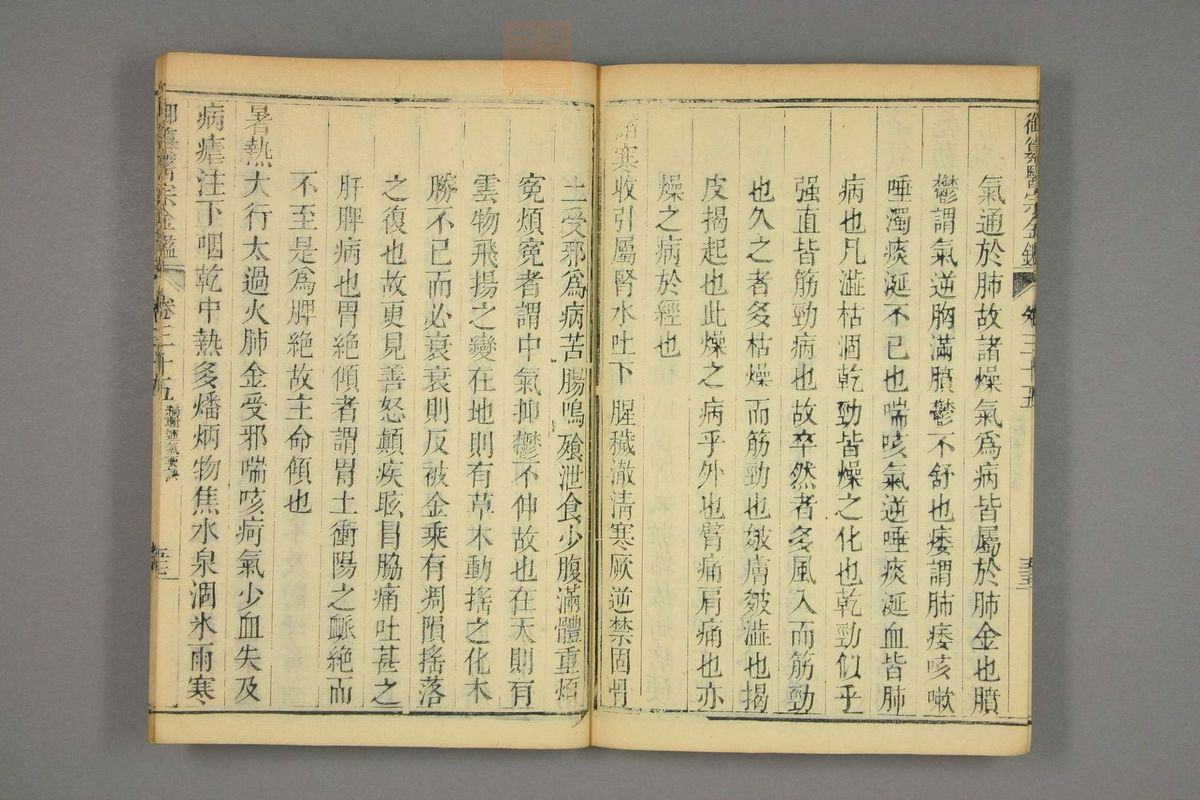 御纂醫宗金鑑 卷三十五 五十三
氣通於肺故諸燥氣爲病皆屬於肺金也膹
鬱謂氣逆胸滿膹鬱不舒也痿謂肺痿咳嗽
唾濁痰涎不已也喘咳氣逆唾痰涎血皆肺
病也凡澁枯涸乾勁皆燥之化也乾勁似乎
强直皆筋勁病也故卒然者多風入而筋勁
也久之者多枯燥而筋勁也皴膚皴澁也揭
皮揭起也此燥之病乎外也臂痛肩痛也亦
燥之病於經也
諸寒收引屬腎水吐下腥穢澈清寒厥逆禁固骨
土受邪爲病苦腸鳴飧泄食少腹滿體重煩
寃煩寃者謂中氣抑鬱不伸故也在天則有
雲物飛揚之變在地則有草木動搖之化木
勝不已而必衰衰則反被金乘有凋隕搖落
之復也故更見善怒顛疾眩冒脇痛吐甚之
肝脾病也胃絶傾者謂胃土衝陽之脈絶而
不至是爲脾絶故主命傾也
暑熱大行太過火肺金受邪喘咳疴氣少血失及
病瘧注下咽乾中熱多燔焫物焦水泉涸氷雨寒
御纂醫宗金鑑 卷三十五 編輯運氣要訣